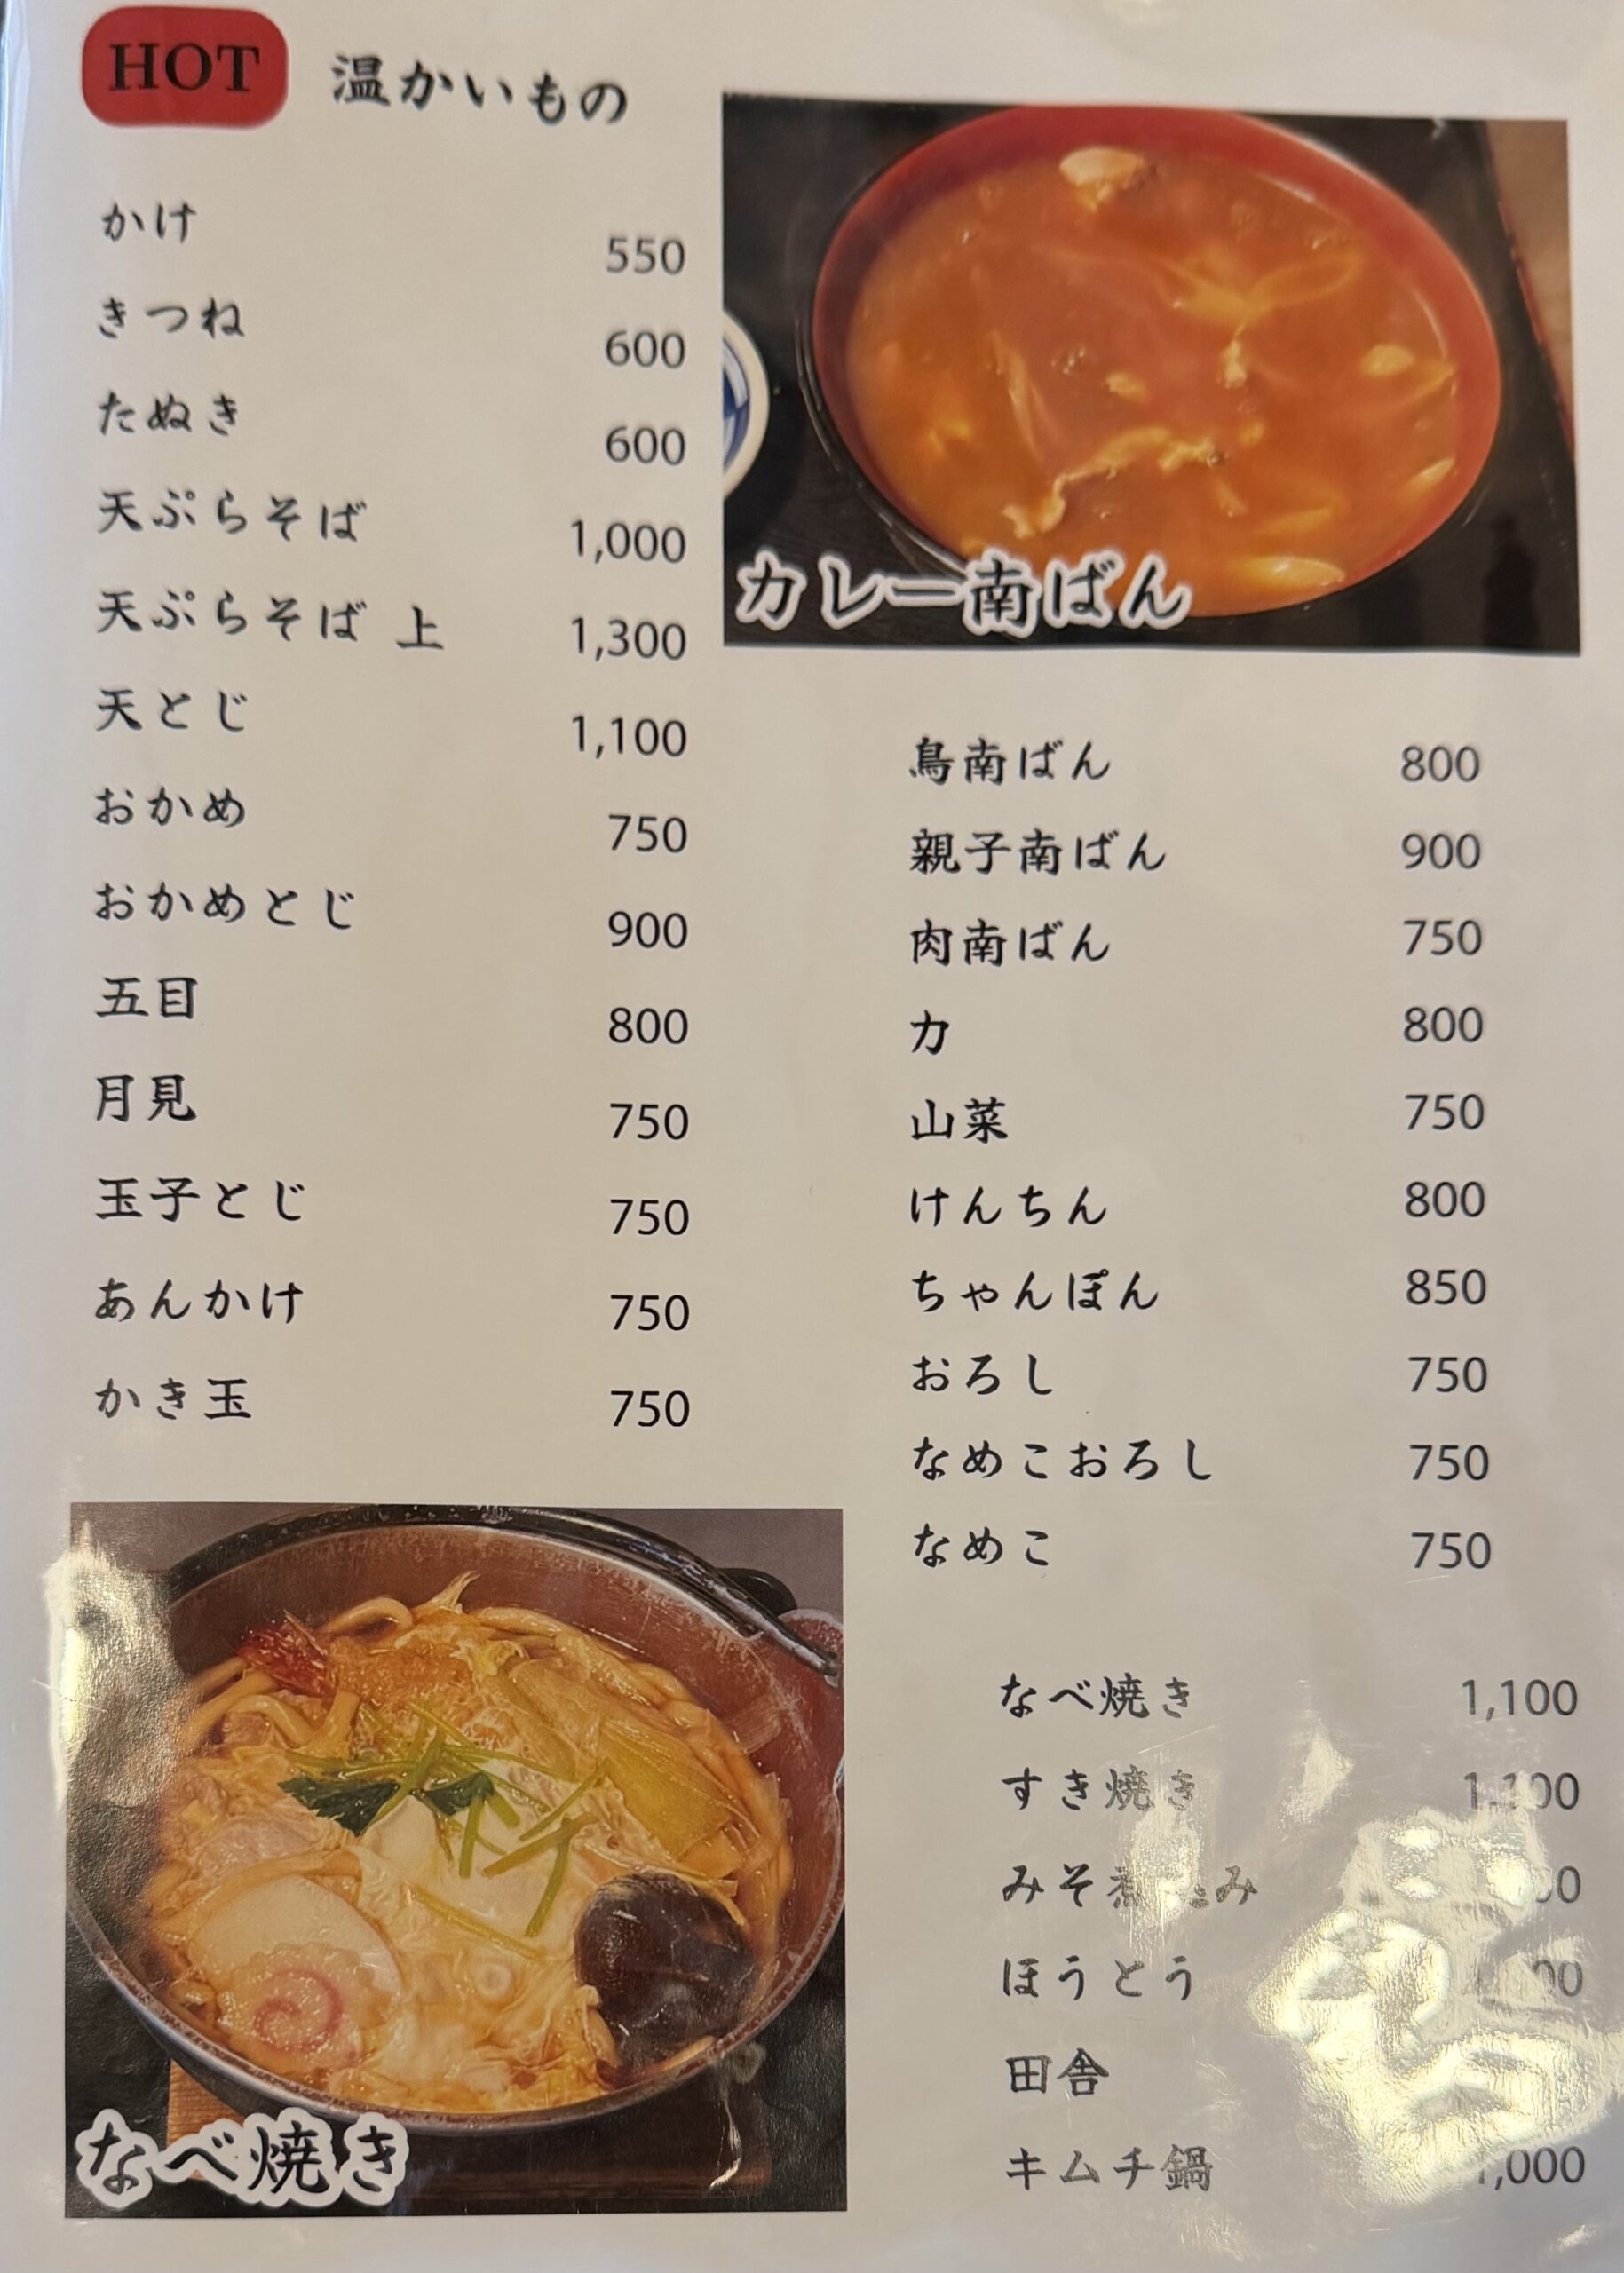 HOT 温かいもの
かけ 550
きつね 600
たぬき 600
天ぷらそば 1,000
天ぷらそば 上 1,300
天とじ 1,100
おかめ 750
おかめとじ 900
五目 800
月見 750
玉子とじ 750
あんかけ 750
かき玉 750
なべ焼き
カレー南ばん
鳥南ばん 800
親子南ばん 900
肉南ばん 750
力 800
山菜 750
けんちん 800
ちゃんぽん 850
おろし 750
なめこおろし 750
なめこ 750
なべ焼き 1,100
すき焼き 1,100
みそ煮込み
ほうとう
田舎
キムチ鍋 1,000